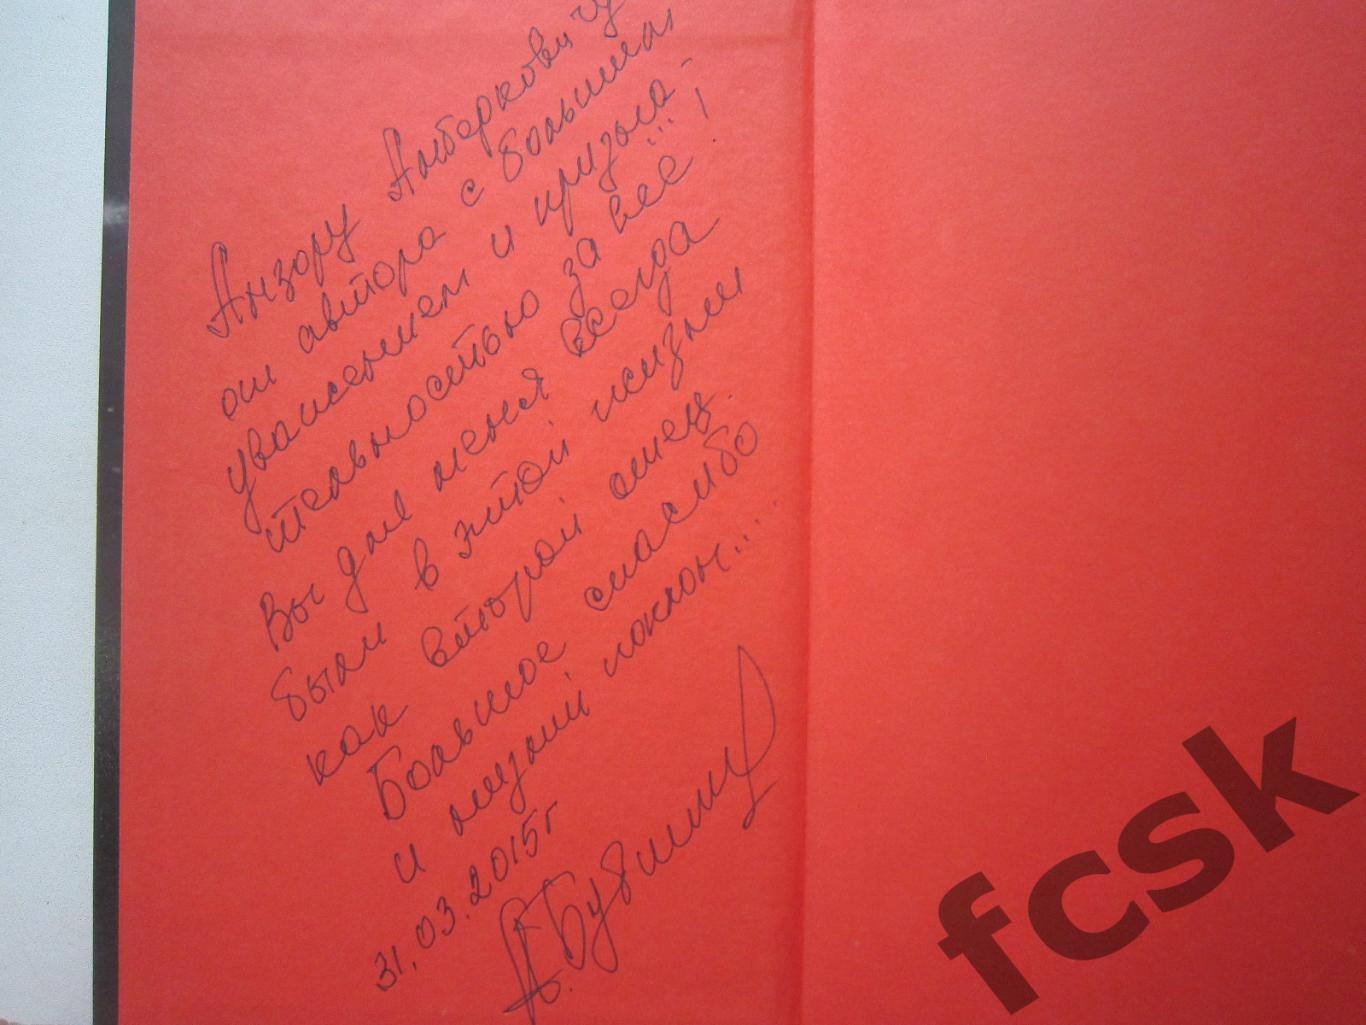 Анзору Амберковичу
от автора с большим
уважением и призна-
тельностью за все...!
Вы для меня всегда
были в этой жизни
как второй отец.
Большое спасибо
и низкий поклон...
31.03.2015г
fcsk